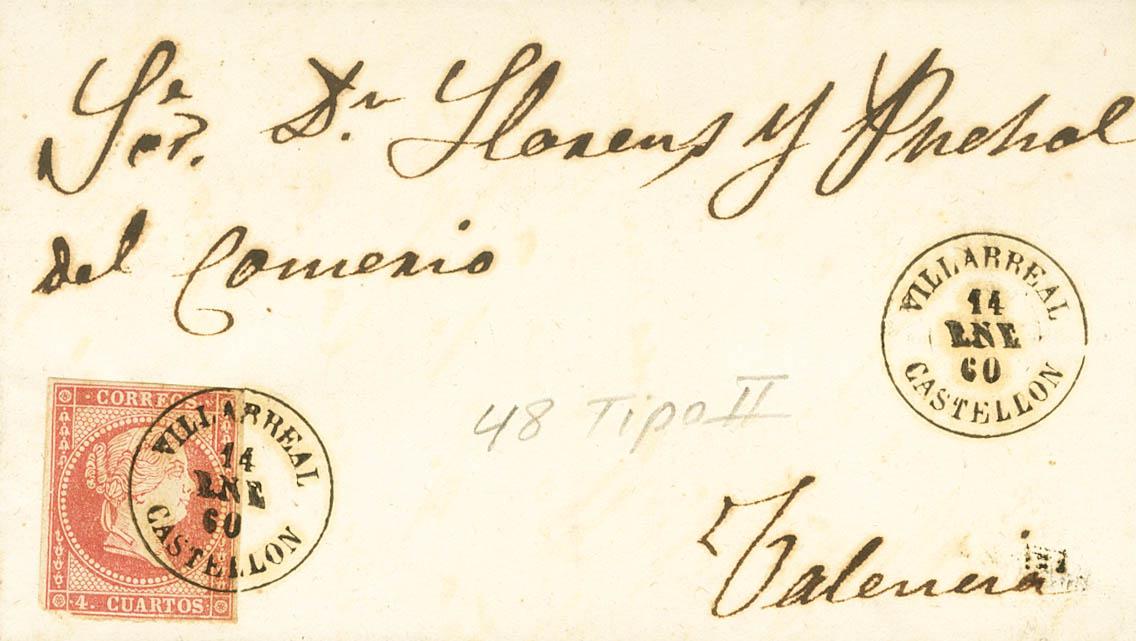 Sr. Dn Llorens y Puchol
del Comercio
VILLARREAL
14
ENE
60
CASTELLON
CORREOS
4. CUARTOS
VILLARREAL
14
ENE
60
CASTELLON
48 Tipo II
Valencia